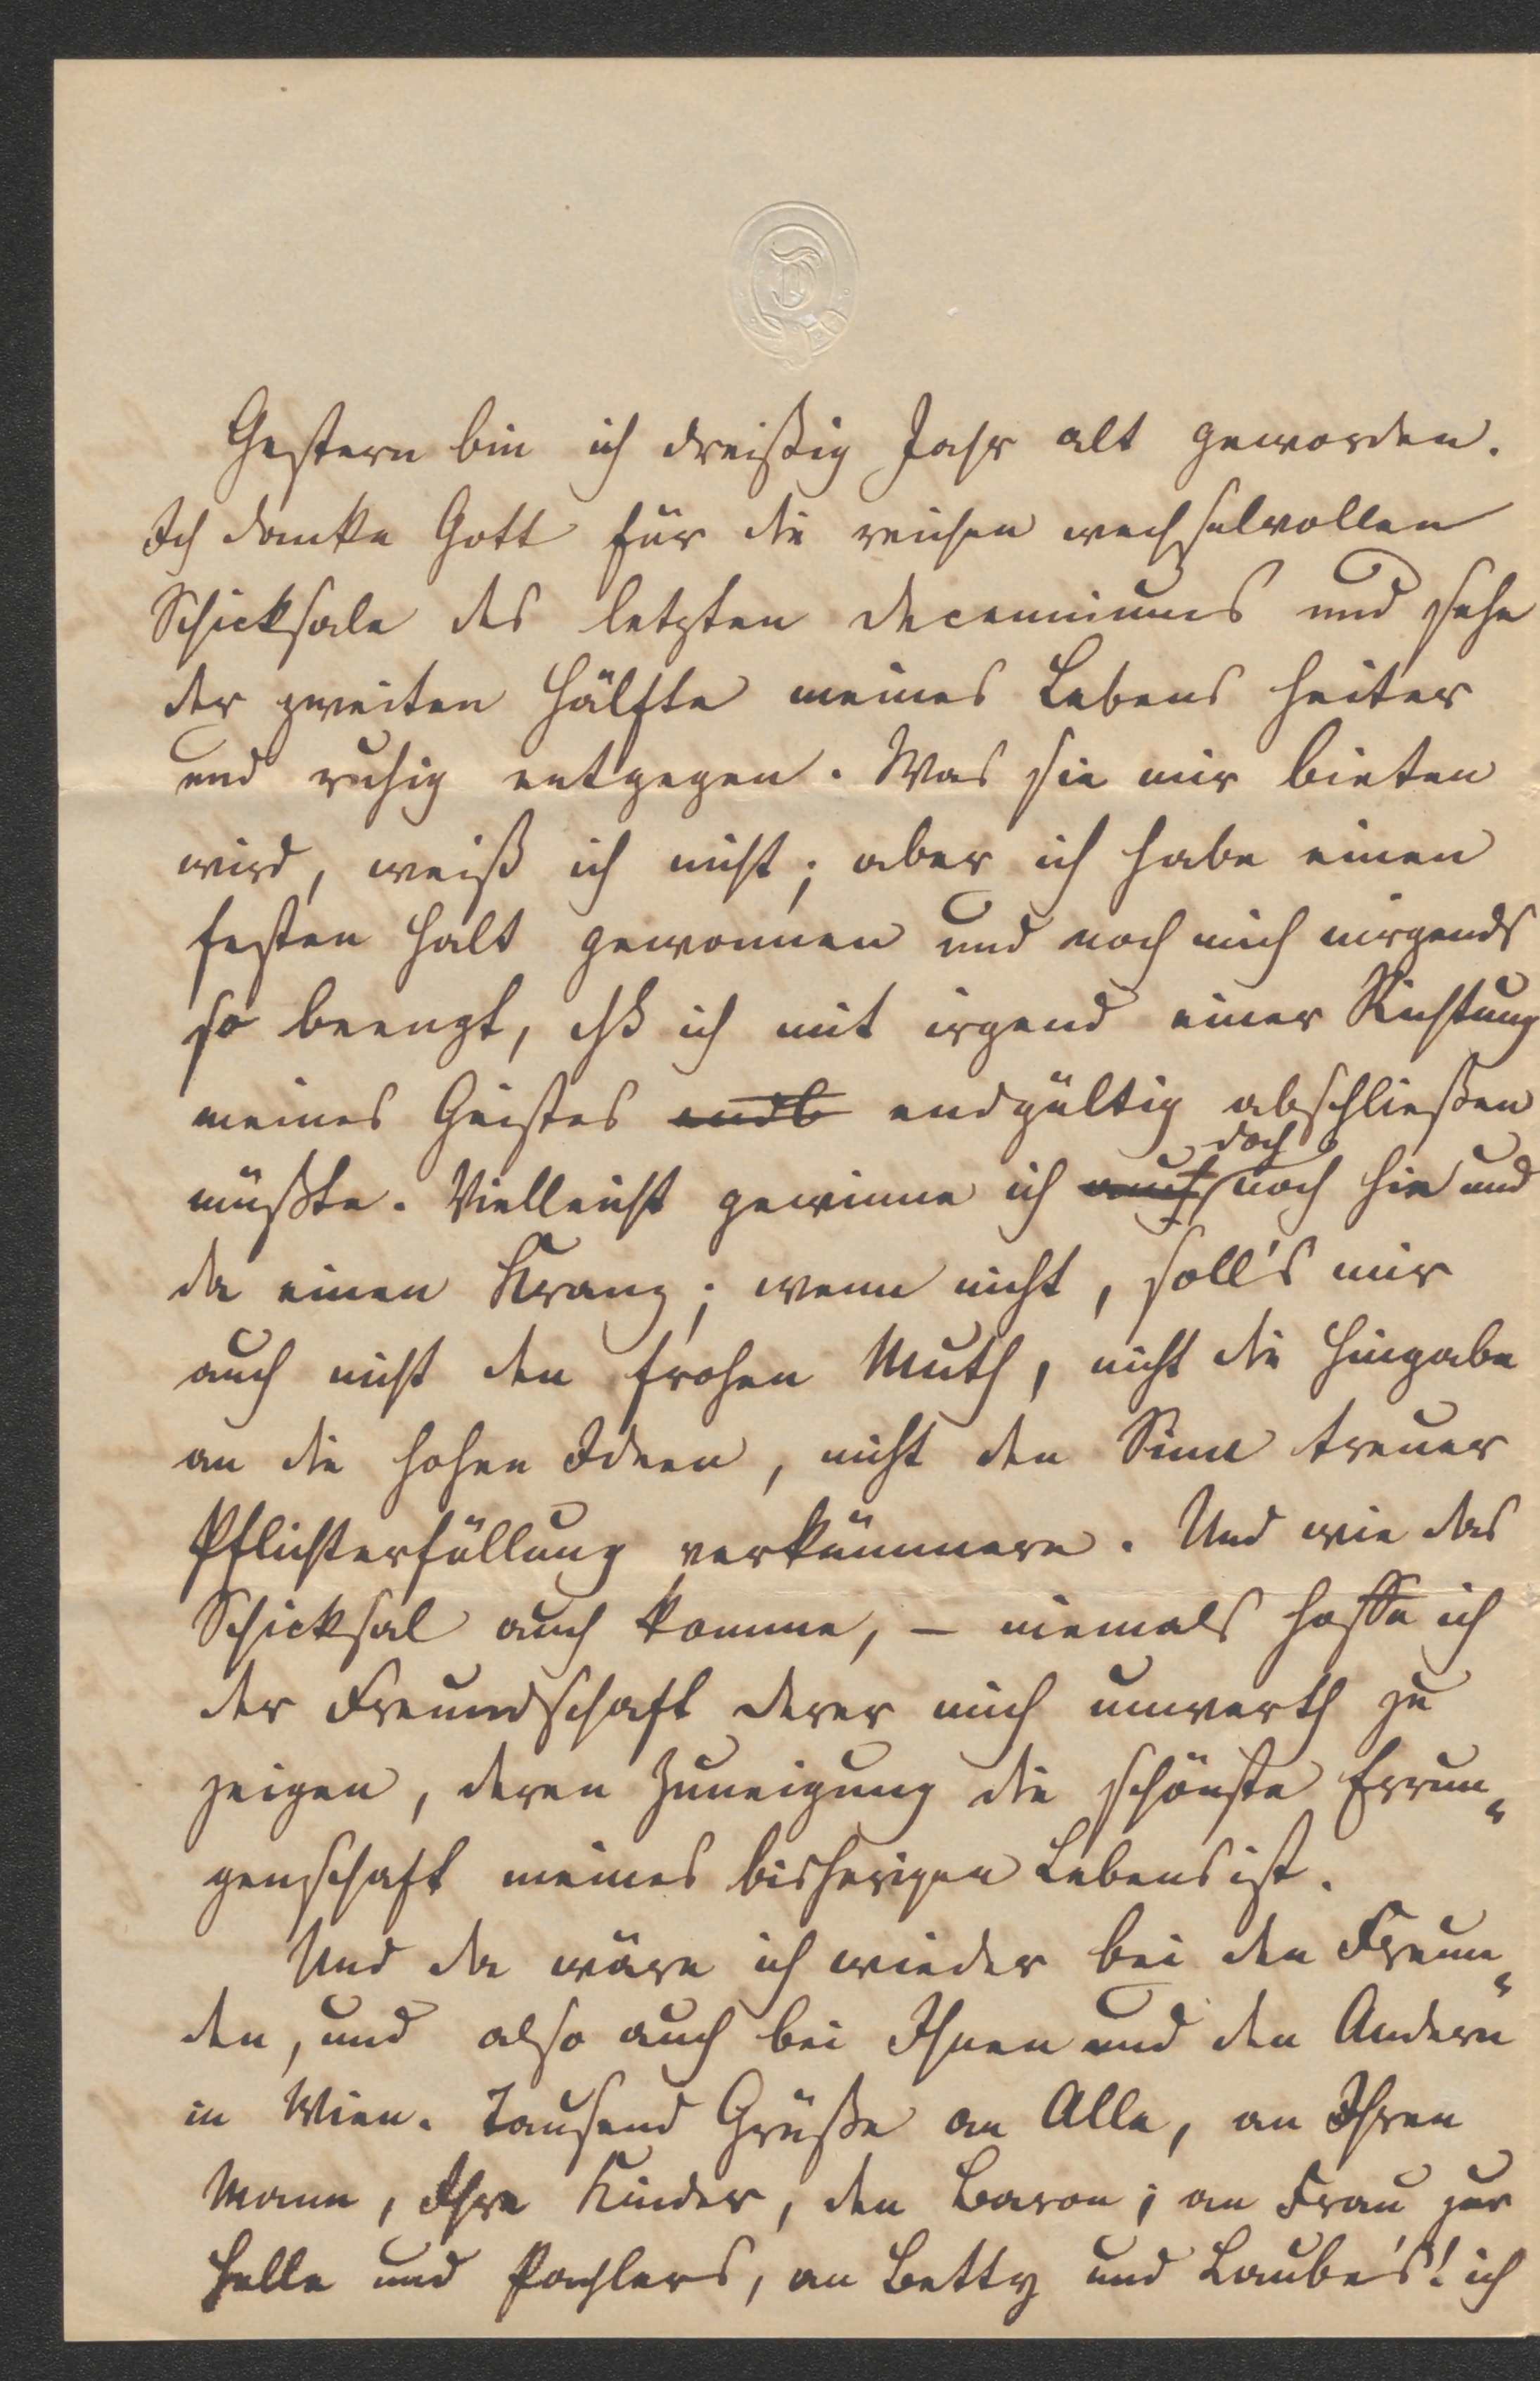 Gestern bin ich dreißig Jahr alt geworden.
Ich danke Gott für die reichen wechselvollen
Schicksale des letzten Decenniums und sehe
der zweiten Hälfte meines Lebens heiter
und ruhig entgegen. Was sie mir bieten
wird, weiß ich nicht; aber ich habe einen
festen Halt gewonnen und noch mich nirgends
so beengt, dß ich mit irgend einer Richtung
meines Geistes endb endgültig abschließen
müßte. Vielleicht gewinne ich auch doch noch hie und
da einen Kranz; wenn nicht, soll's mir
auch nicht den frohen Muth, nicht die Hingabe
an die hohen Ideen, nicht den Sinn treuer
Pflichterfüllung verkümmern. Und wie das
Schicksal auch komme, – niemals hoffe ich
der Freundschaft derer mich unwerth zu
zeigen, deren Zuneigung die schönste Errun-
genschaft meines bisherigen Lebens ist.
Und da wäre ich wieder bei den Freun-
den, und also auch bei Ihnen und den Andern
in Wien. Tausend Grüße an Alle, an Ihren
Mann, Ihre Kinder, den Baron; an Frau zur
Helle und Pachlers, an Betty und Laube's! ich